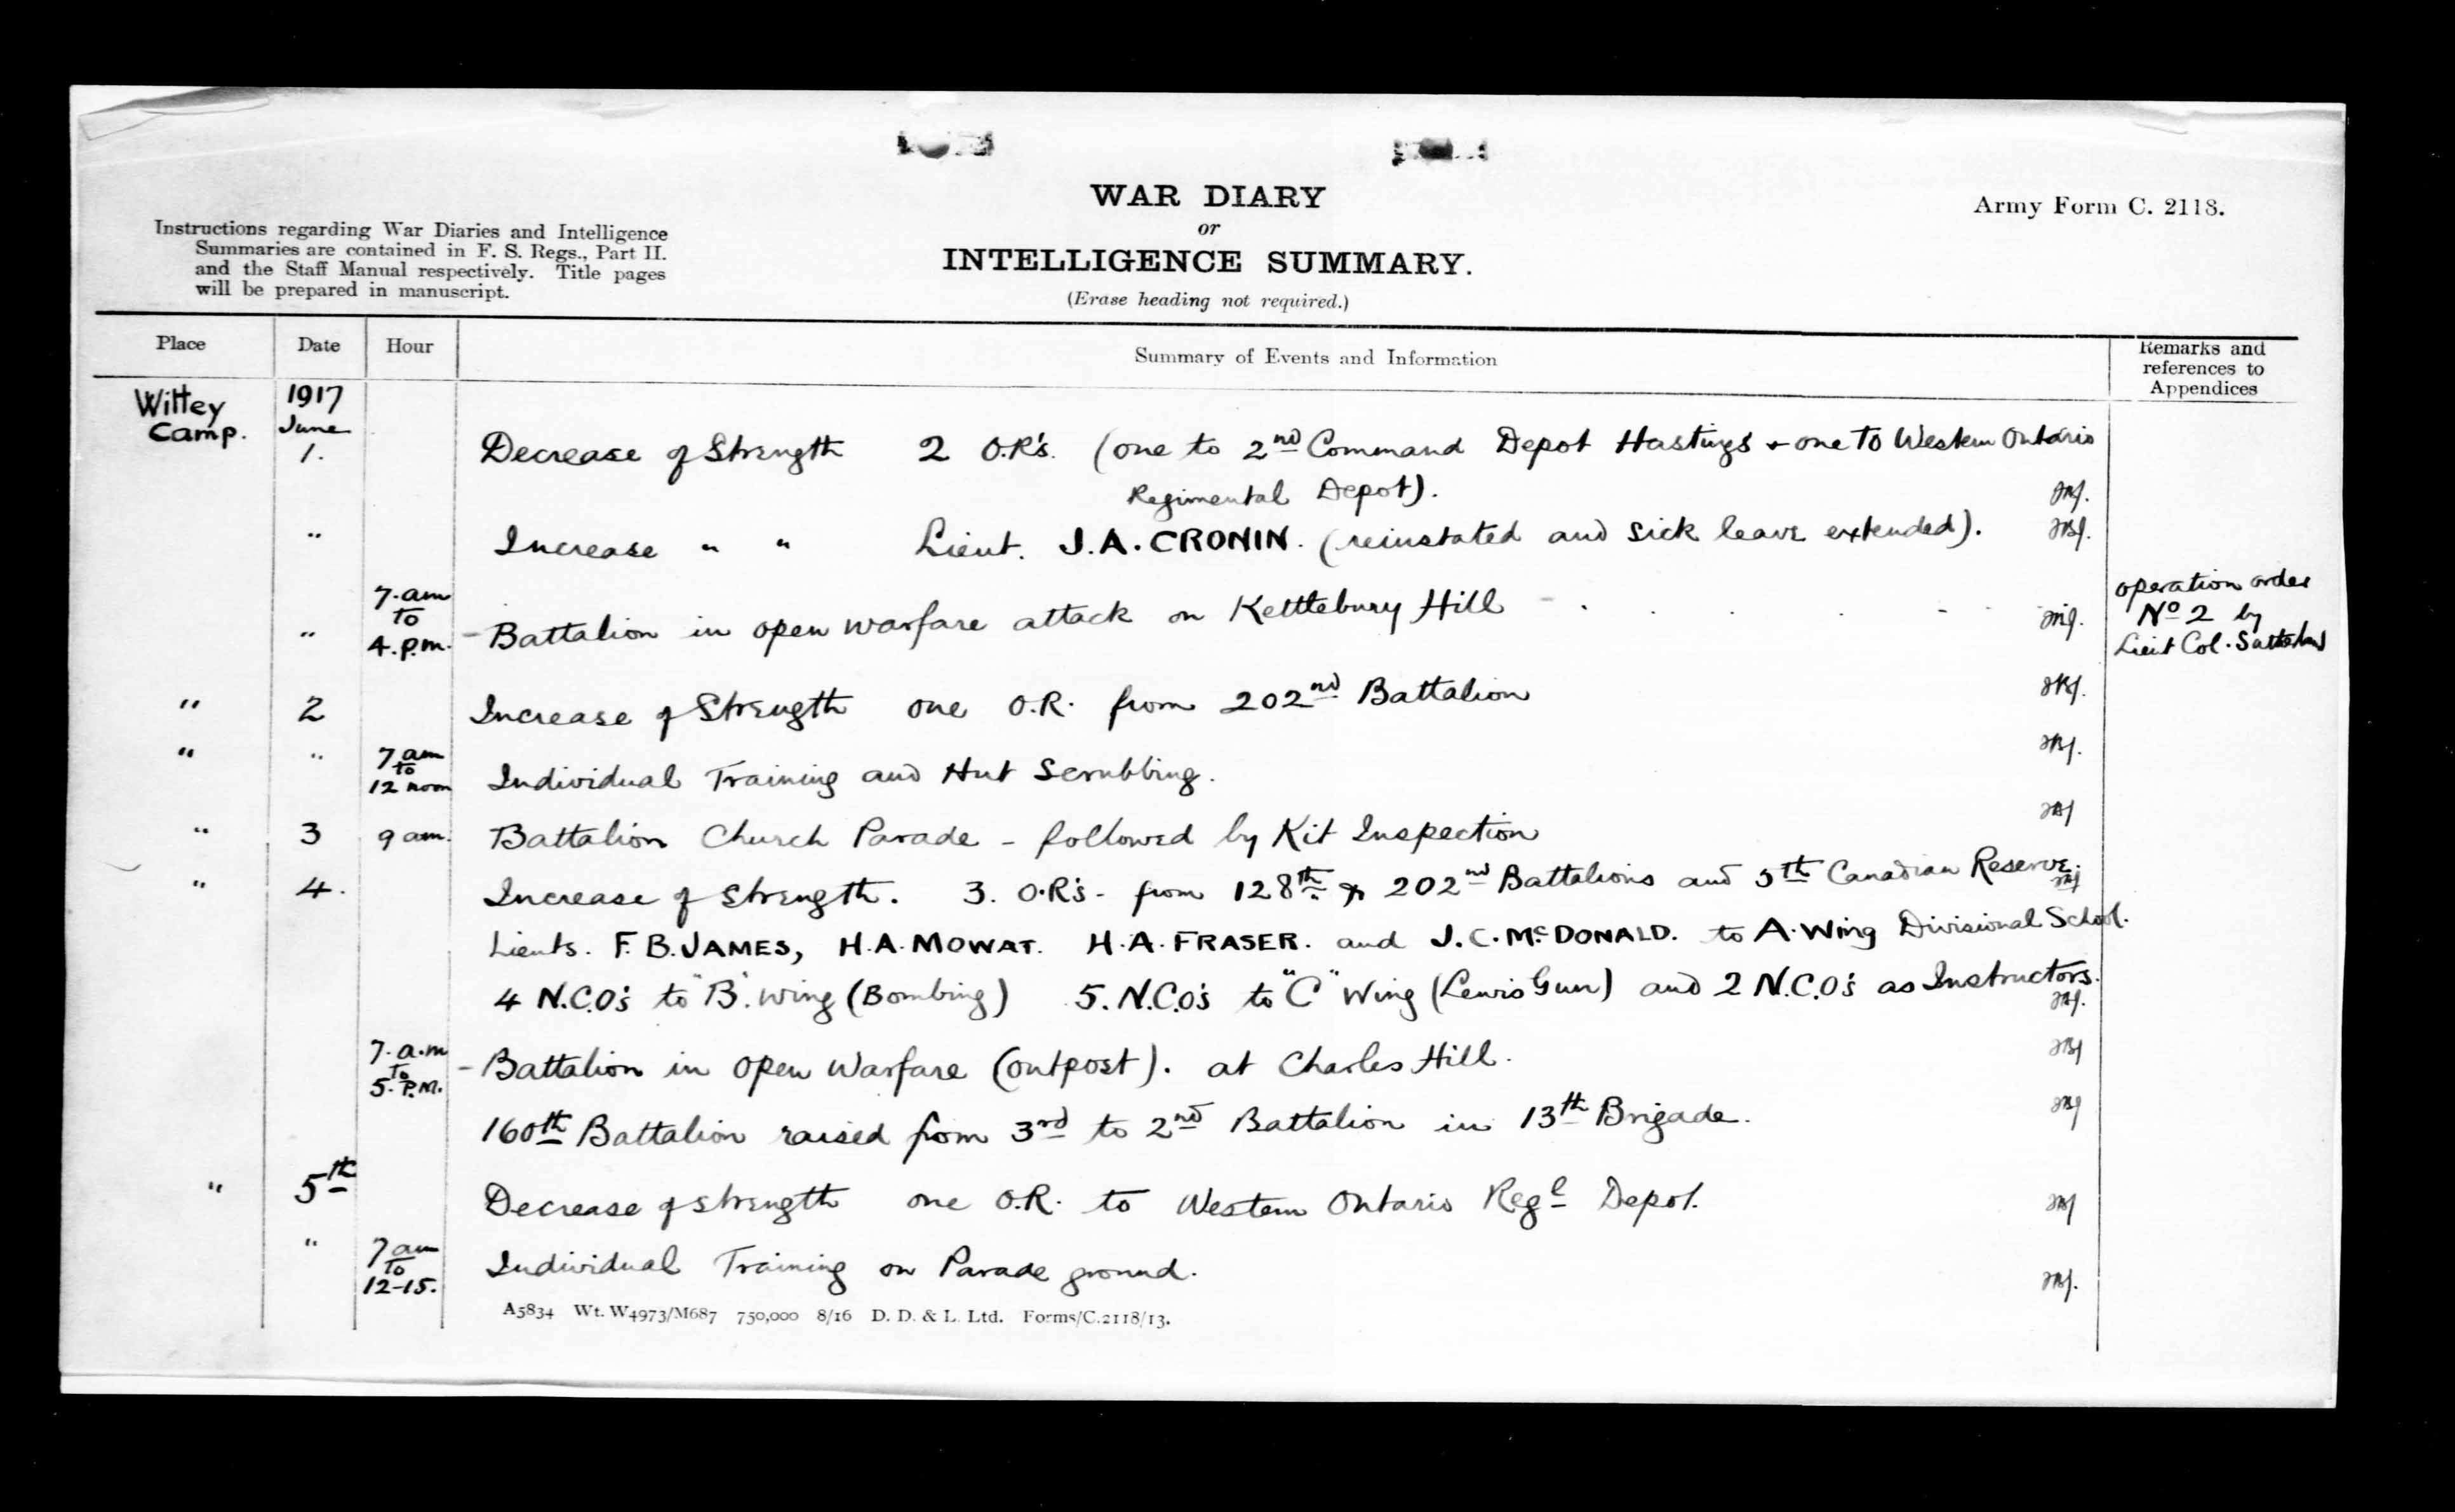 WAR DIARY
or
INTELLIGENCE SUMMARY.
(Erase heading not required.)
Army Form C. 2118.
Instructions regarding War Diaries and Intelligence
Summaries are contained in F. S. Regs., Part II.
and the Staff Manual respectively. Title pages
will be prepared in manuscript.
Place Date Hour Summary of Events and Information Remarks and references to Appendices
Witley Camp. 1917 June 1. Decrease of Strength 2 O.R's. (one to 2nd Command Depot Hastings + one to Western Ontario
Regimental Depot).
" Increase " " Lieut. J.A. CRONIN. (reinstated and sick leave extended).
" 7. am to 4. p.m. - Battalion in open warfare attack on Kettlebury Hill operation order No 2 by Lieut Col.
" 2 Increase of Strength one O.R. from 202nd Battalion
" " 7 am to 12 noon Individual Training and Hut Scrubbing.
" 3 9 am. Battalion Church Parade - followed by Kit Inspection
" 4. Increase of Strength. 3. O.R's - from 128th 202nd Battalions and 5th Canadian Reserve.
Lieuts. F. B. JAMES, H.A. MOWAT. H.A. FRASER. and J.C. McDONALD. to A. Wing Divisional School.
4 N.C.O's to "B". wing (Bombing) 5. N.C.O's to "C" Wing (Lewis Gun) and 2 N.C.O's as Instructors.
7. a.m to 5. P.M. - Battalion in Open Warfare (outpost). at Charles Hill.
160th Battalion raised from 3rd to 2nd Battalion in 13th Brigade.
" 5th Decrease of strength one O.R. to Western Ontario Regl Depot.
" 7 am to 12-15. Individual Training on Parade ground.
A5834 Wt. W4973/M687 750,000 8/16 D. D. & L. Ltd. Forms/C.2118/13.